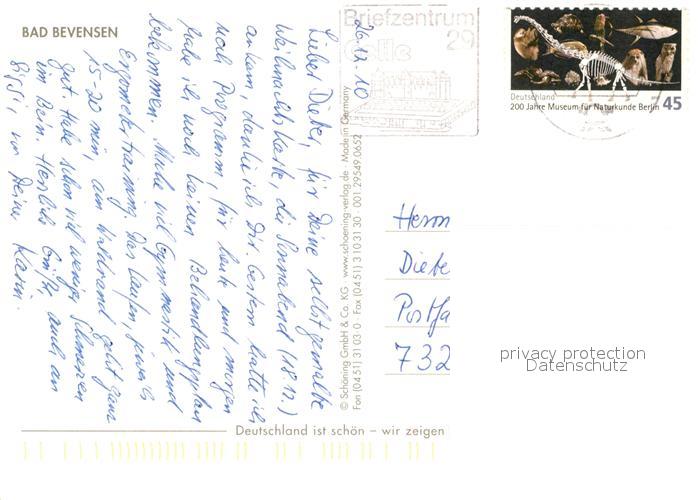 BAD BEVENSEN
Lieber Dieter, für Deine selbstgemalte
Weihnachtskarte, die Sonnabend (18.12.)
ankam, danke ich Dir. Gestern hatte ich
noch Programm, für heute und morgen
habe ich noch keinen Behandlungsplan
bekommen. Mache viel Gymnastik und
Ergometertraining. Das Laufen, jeweils
15-20 min, am Waldrand geht ganz
gut. Habe schon viel weniger Schmerzen
im Bein. Herzliche Grüße, auch an
von Deiner Karin.
© Schöning GmbH & Co. KG · www.schoening-verlag.de · Made in Germany
Fon (04 51) 31 03 0 · Fax (04 51) 3 10 31 30 · 001 29549 0652
Briefzentrum
29
Celle
12.10
Deutschland
200 Jahre Museum für Naturkunde Berlin 45
Herrn
Diete
Postfa
732
privacy protection
Datenschutz
Deutschland ist schön – wir zeigen